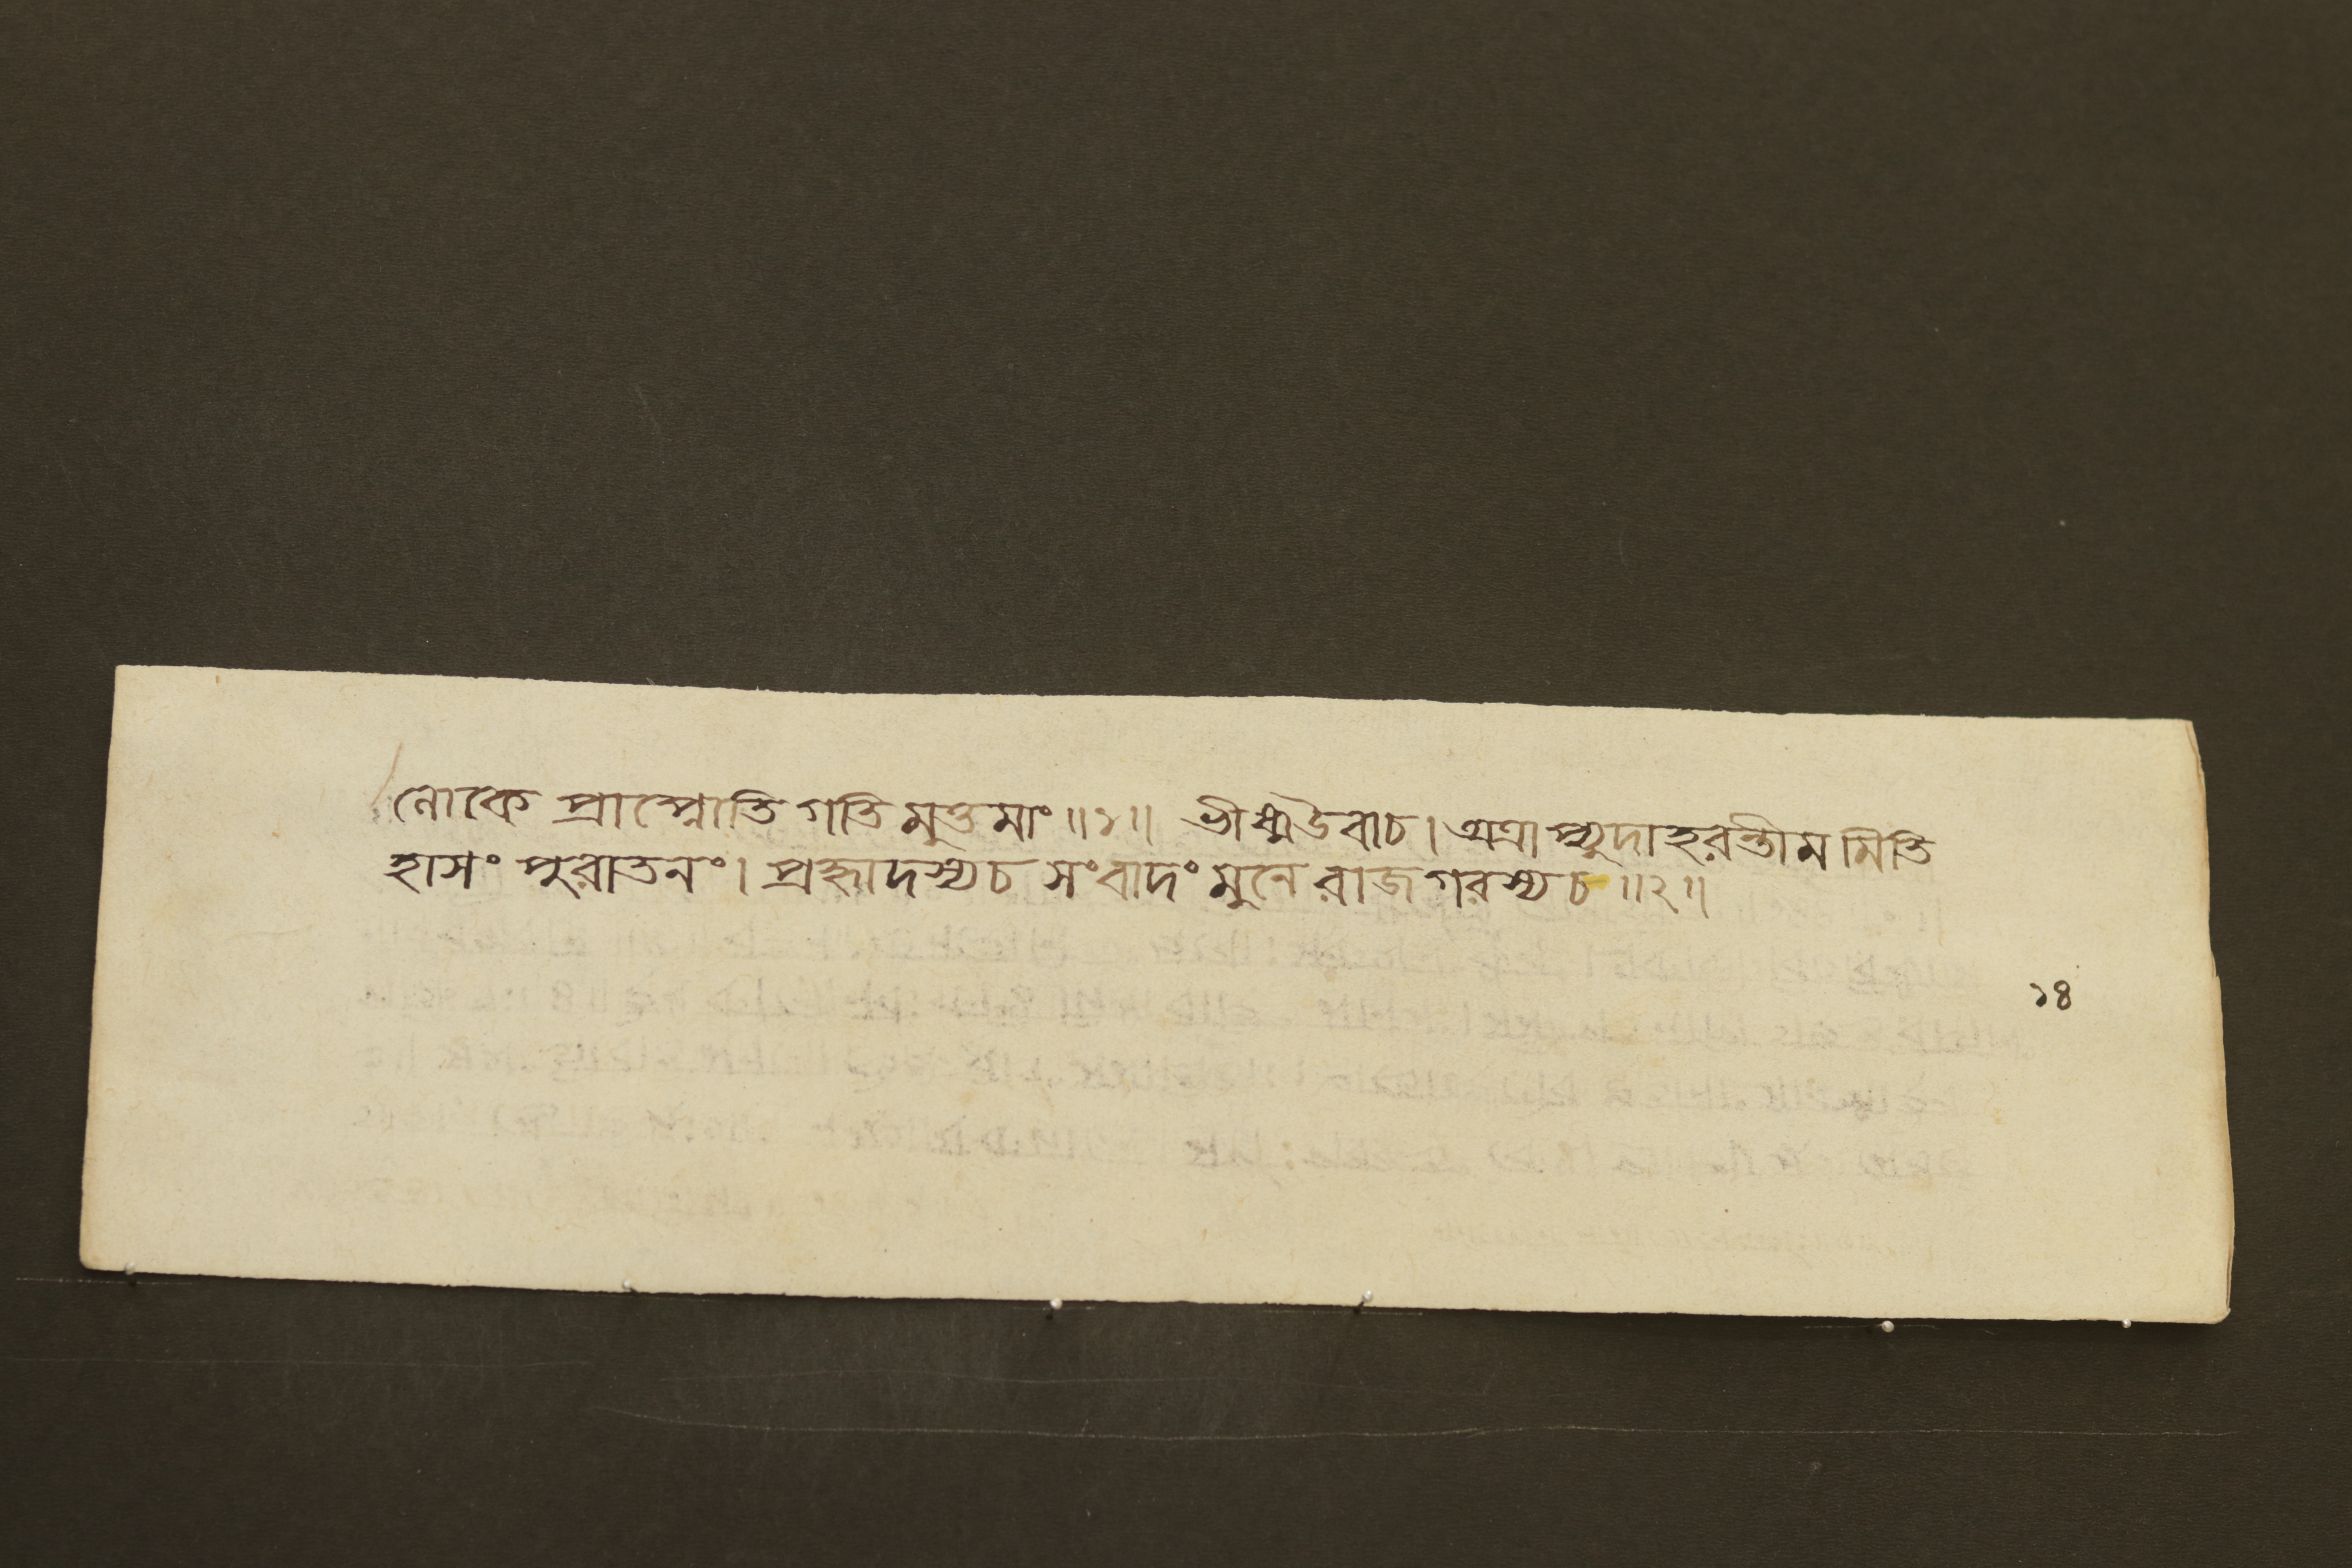 লোকে প্রাপ্নোতি গতিমুত্তমাং ॥১॥ ভীষ্মউবাচ। অত্রাপ্যুদাহরন্তীমমিতি
হাসং পুরাতনং। প্রহ্লাদস্যচ সংবাদং মুনেরাজগরস্যচ ॥২॥
১৪